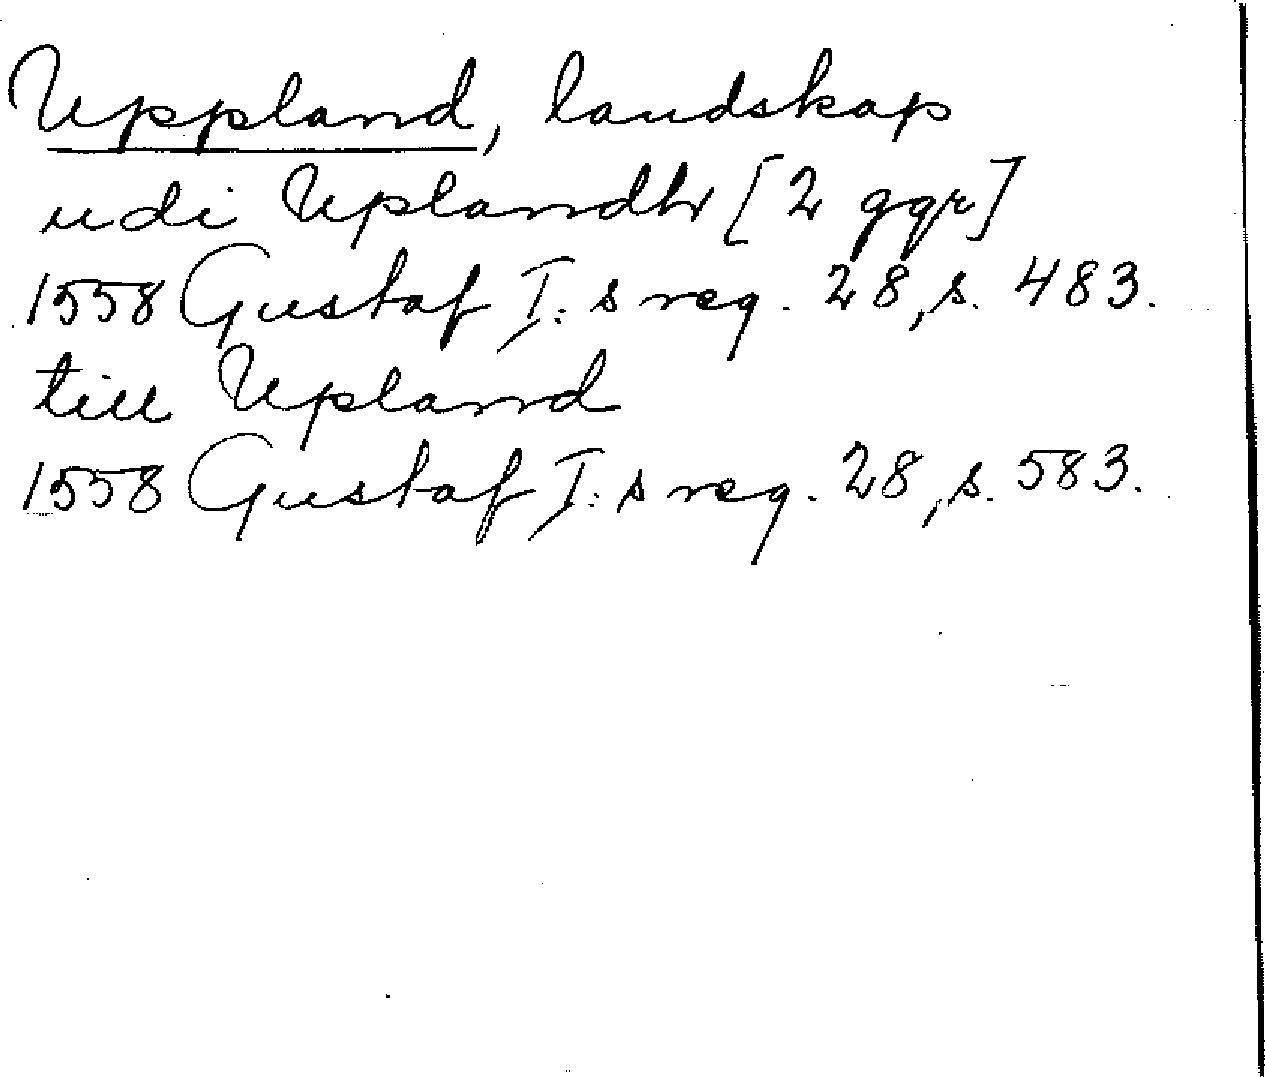 Uppland, landskap
udi Uplandh [2 ggr]
1558 Gustaf I:s reg. 28, s. 483.
till Upland
1558 Gustaf I:s reg. 28, s. 583.